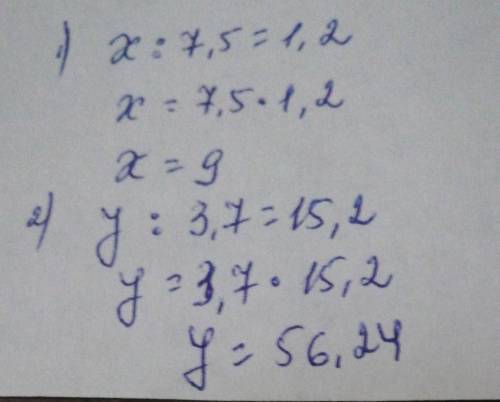 1) x : 7,5 = 1,2
x = 7,5 · 1,2
x = 9
2) y : 3,7 = 15,2
y = 3,7 · 15,2
y = 56,24